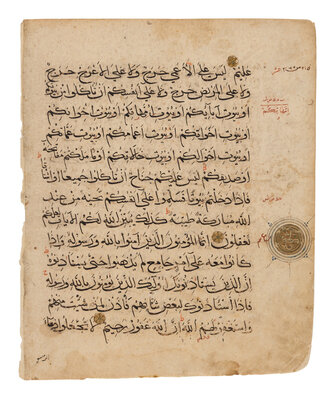 عليم ليس على الاعمى حرج ولا على الاعرج حرج
ولا على المريض حرج ولا على انفسكم ان تاكلوا من بيوتكم
او بيوت ابايكم او بيوت امهاتكم او بيوت اخوانكم
او بيوت اخواتكم او بيوت اعمامكم او بيوت عماتكم
او بيوت اخوالكم او بيوت خالاتكم او ما ملكتم مفاتحه
او صديقكم ليس عليكم جناح ان تاكلوا جميعا او اشتاتا
فاذا دخلتم بيوتا فسلموا على انفسكم تحية من عند
الله مباركة طيبة كذلك يبين الله لكم الايات لعلكم
تعقلون انما المومنون الذين امنوا بالله ورسوله واذا
كانوا معه على امر جامع لم يذهبوا حتى يستاذنوه
ان الذين يستاذنونك اوليك الذين يومنون بالله ورسوله
فاذا استاذنوك لبعض شانهم فاذن لمن شيت منهم
واستغفر لهم الله ان الله غفور رحيم لا تجعلوا دعا